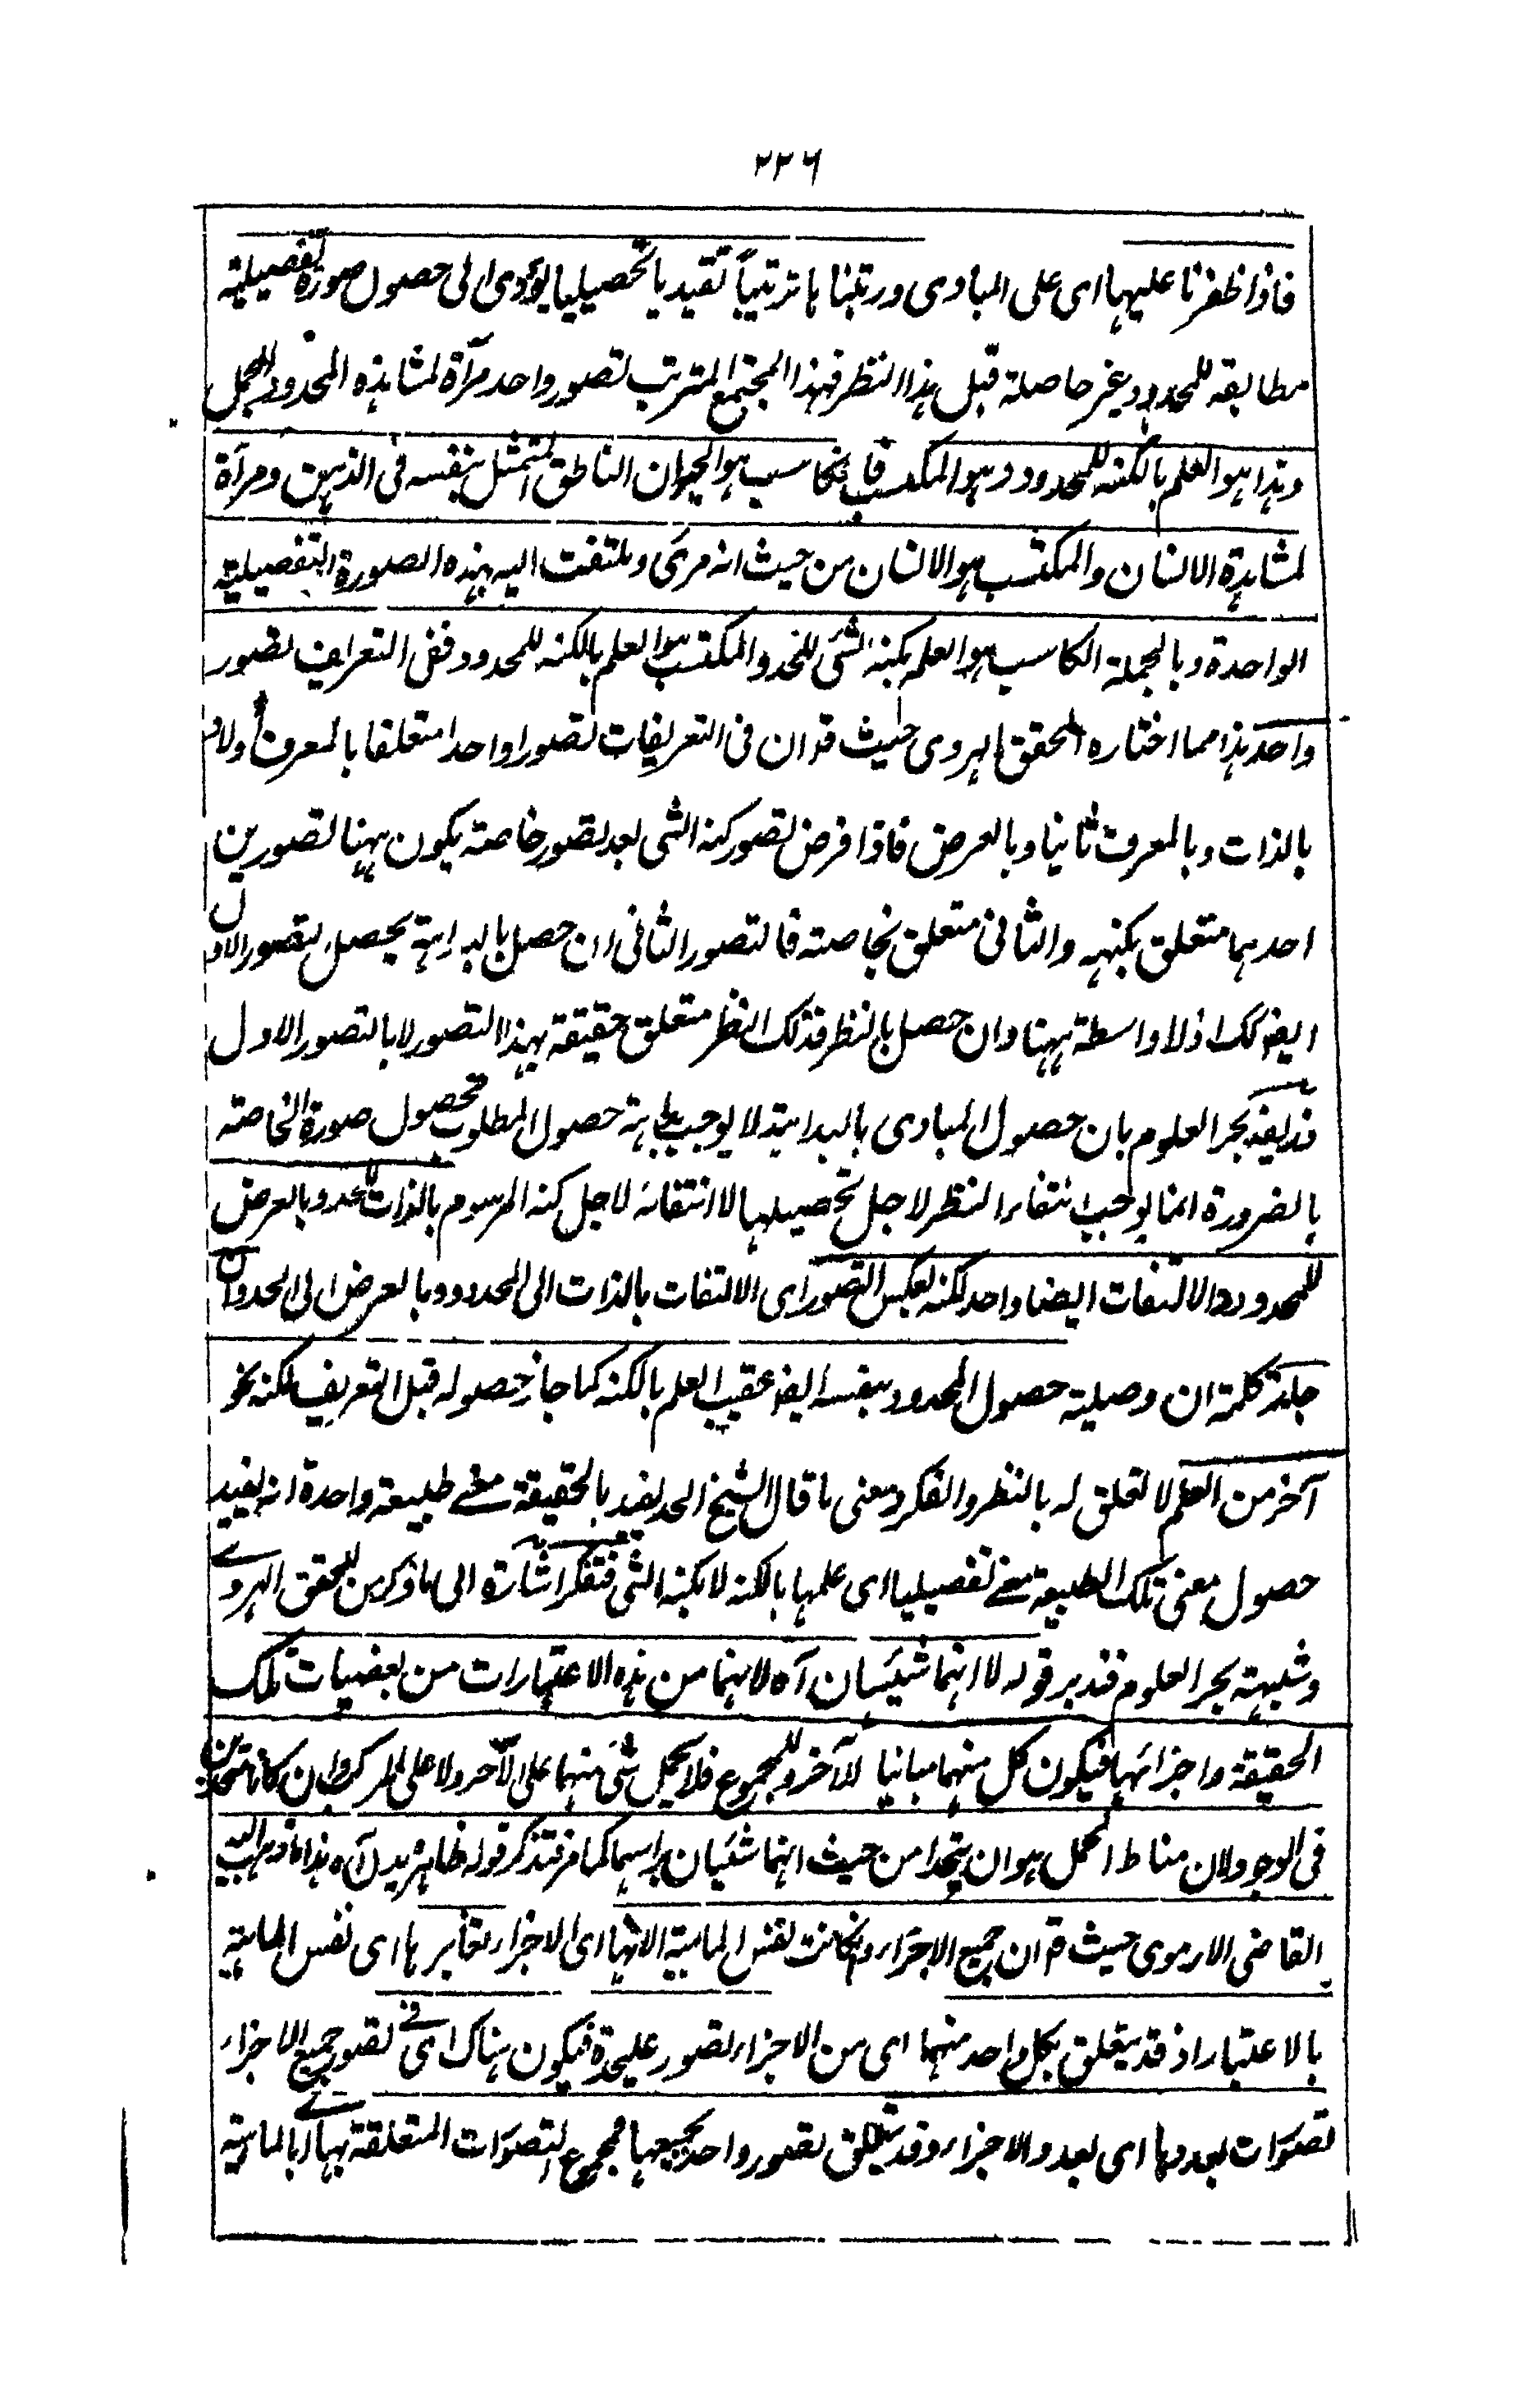 ٢٢٦
فاذا ظفرنا عليها اى على المبادى ورتبنا ها ترتيباً تقيد يا تحصيليا يؤدى الى حصول صورة تفصيلية
مطابقه للمحدود غير حاصلة قبل هذا النظر فهذا المجتمع المترتب تصور واحد مرآة لمشاهده المحدود المجمل
وهذا هو العلم بالكنه للمحدود وهو المكتسب فالكاسب هو الحيوان الناطق المتمثل بنفسه فى الذهن ومرآة
لمشاهدة الانسان والمكتسب هو الانسان من حيث انه مرئى وملتفت اليه بهذه الصورة التفصيلية
الواحدة وبالجملة الكاسب هو العلم بكنه الشئ للحد والمكتسب هو العلم بالكنه للمحدود ففى التعريف تصور
واحد هذا مما اختاره المحقق الهروى حيث قد ان فى التعريفات تصورا واحدا متعلقا بالمعرف اولا و
بالذات وبالمعرف ثانيا وبالعرض فاذا فرض تصور كنه الشى بعد تصور خاصته يكون ههنا تصورين
احدهما متعلق بكنهه والثانى متعلق بخاصته فالتصور الثانى ان حصل بالبداهة يحصل تصور الاول
ايضا كك اذ لا واسطة ههنا وان حصل بالنظر فذلك النظر متعلق حقيقة بهذا التصور لا بالتصور الاول
بحر العلوم بان حصول المبادى بالبداهة لا يوجب بداهة حصول المطلوب فحصول صورة الخاصته
بالضرورة انما يوجب انتفاء النظر لاجل تحصيلها لا انتفائه لاجل كنه المرسوم بالذات للحد وبالعرض
للمحدود والالتفات ايضا واحد لكنه بعكس التصور اى الالتفات بالذات الى المحدود وبالعرض الى الحد وان
كلمة ان وصلية حصول المحدود بنفسه ايضا عقيب العلم بالكنه كما جاز حصوله قبل التعريف لكنه نحو
آخر من العلم لا تعلق له بالنظر والفكر ومعنى ما قال الشيخ الحد يفيد بالحقيقة معنى طبيعة واحدة انه يفيد
حصول معنى تلك الطبيعة معنى تفصيليا اى علمها بالكنه لا بكنه الشى فتفكر اشارة الى ما ذكر من المحقق الهروى
وشبهة بحر العلوم فتدبر قوله لا انهما شيئان آه لانهما من هذه الاعتبارات من بعضيات تلك
الحقيقة واجزائها فيكون كل منهما مباينا للآخر وللمجموع فلا يحمل شئ منهما على الآخر ولا على المركب وان كانا متحدين
فى الوجود لان مناط الحمل هو ان يتحدا من حيث انهما شيئان براسهما كما مر فتذكر قوله ظاهره يدل آه هذا ما ذهب اليه
القاضى الارموى حيث ق ان جميع الاجزاء وان كانت نفس الماهية الا انها اى الاجزاء تغايرها اى نفس الماهية
بالاعتبار اذ قد يتعلق بكل واحد منهما اى من الاجزاء تصور عليحدة فيكون هناك اى فى تصور جميع الاجزاء
تصورات بعددها اى بعدد الاجزاء وقد يتعلق تصور واحد بجميعها فمجموع التصورات المتعلقة بها اى بالماهية